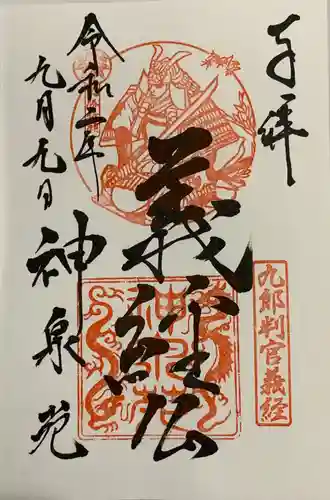 奉拝
九郎判官義経
義経公
令和二年
九月九日
神泉苑